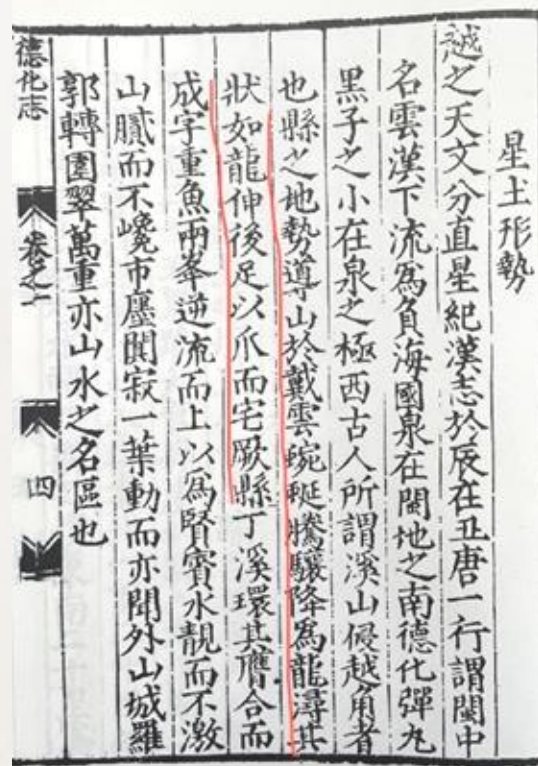 星土形勢
越之天文分直星紀漢志於辰在丑唐一行謂閩中
名雲漢下流爲負海國泉在閩地之南德化彈丸
黑子之小在泉之極西古人所謂溪山侵越角者
也縣之地勢導山於戴雲蜿蜒騰驤降爲龍潯其
狀如龍伸後足以爪而宅厥縣丁溪環其膺合而
成字重魚兩峯逆流而上以爲賢賓水靚而不激
山膩而不巉市廛闃寂一葉動而亦聞外山城羅
郭轉圍翠萬重亦山水之名區也
德化志
卷之一
四